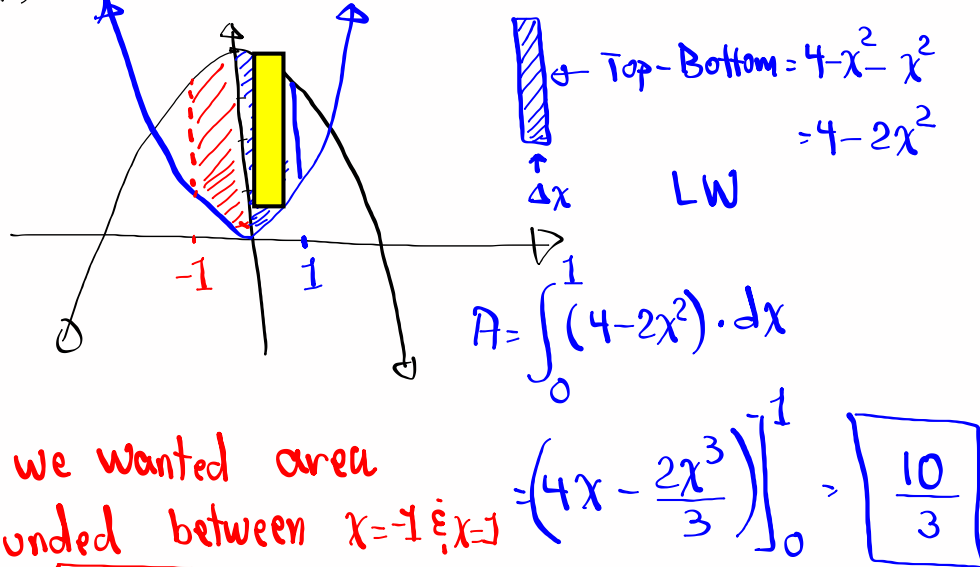 Top-Bottom = 4-x²- x²
= 4-2x²
Δx
LW
-1 1
A = ∫₀¹ (4-2x²) · dx
= (4x - 2x³/3)]₀¹ = 10/3
we wanted area
unded between x=-1 & x=1